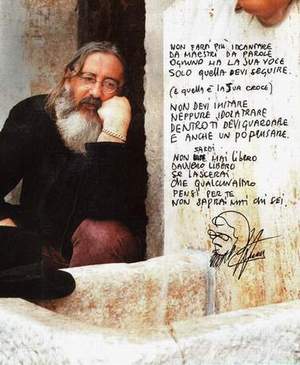 NON FARTI PIÙ INCANTARE
DA MAESTRI DA PAROLE
OGNUNO HA LA SUA VOCE
SOLO QUELLA DEVI SEGUIRE.
(E QUELLA È LA SUA CROCE)
NON DEVI IMITARE
NEPPURE IDOLATRARE
DENTRO TI DEVI GUARDARE
E ANCHE UN PO' PENSARE.
SARAI
NON MAI LIBERO
DAVVERO LIBERO
SE LASCERAI
CHE QUALCUN ALTRO
PENSI PER TE
NON SAPRAI MAI CHI SEI.